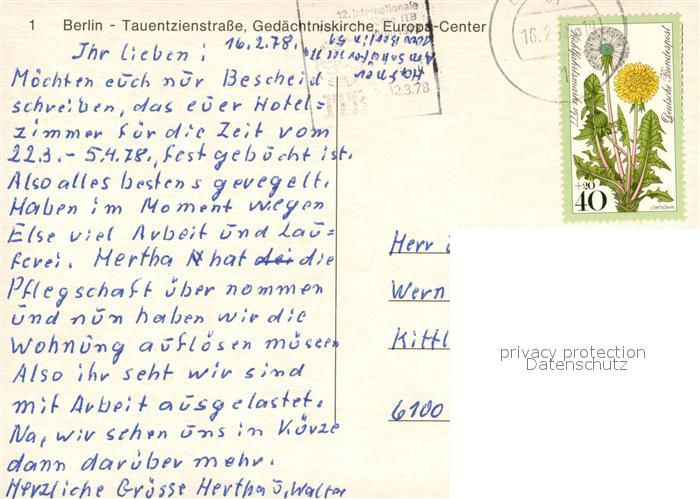 1 Berlin - Tauentzienstraße, Gedächtniskirche, Europa-Center
16.2.78.
Ihr lieben!
Möchten euch nur Bescheid
schreiben, das euer Hotel=
zimmer für die Zeit vom
22.3. - 5.4.78., fest gebücht ist.
Also alles bestens geregelt.
Haben im Moment wegen
Else viel Arbeit und Lau=
ferei. Hertha hat die
Pflegschaft über nommen
und nun haben wir die
Wohnung auflösen müssen
Also ihr seht wir sind
mit Arbeit ausgelastet.
Na, wir sehen uns in Kürze
dann darüber mehr.
Herzliche Grüsse Hertha u. Walter
12. Internationale
ITB
12.3.78
16.2.
Wohlfahrtsmarke 1977
Deutsche Bundespost
+20
40
LÖWENZAHN
Herr
Wern
Kittl
6100
privacy protection
Datenschutz